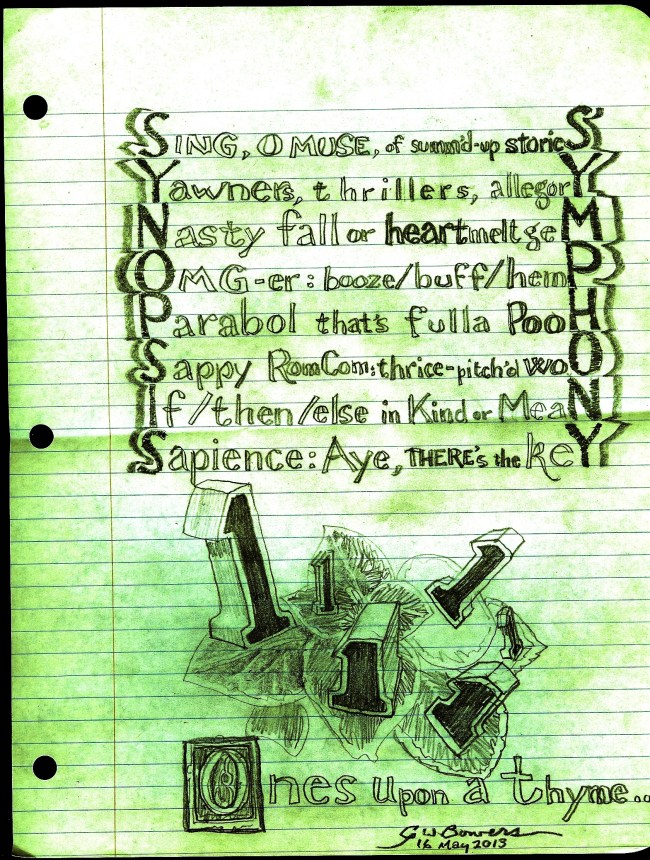 SING, O MUSE, of summ'd-up storieS
Yawners, thrillers, allegorY
Nasty fall or heartmelt geM
OMG-er: booze/buff/hemP
Parabol that's fulla PooH
Sappy RomCom: thrice-pitch'd woO
If/then/else in Kind or MeaN
Sapience: Aye, THERE's the keY
1
1
1
1
1
1
Ones upon a thyme...
GW Bowers
16 May 2013